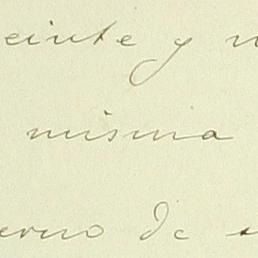 einte y
misma
erno de